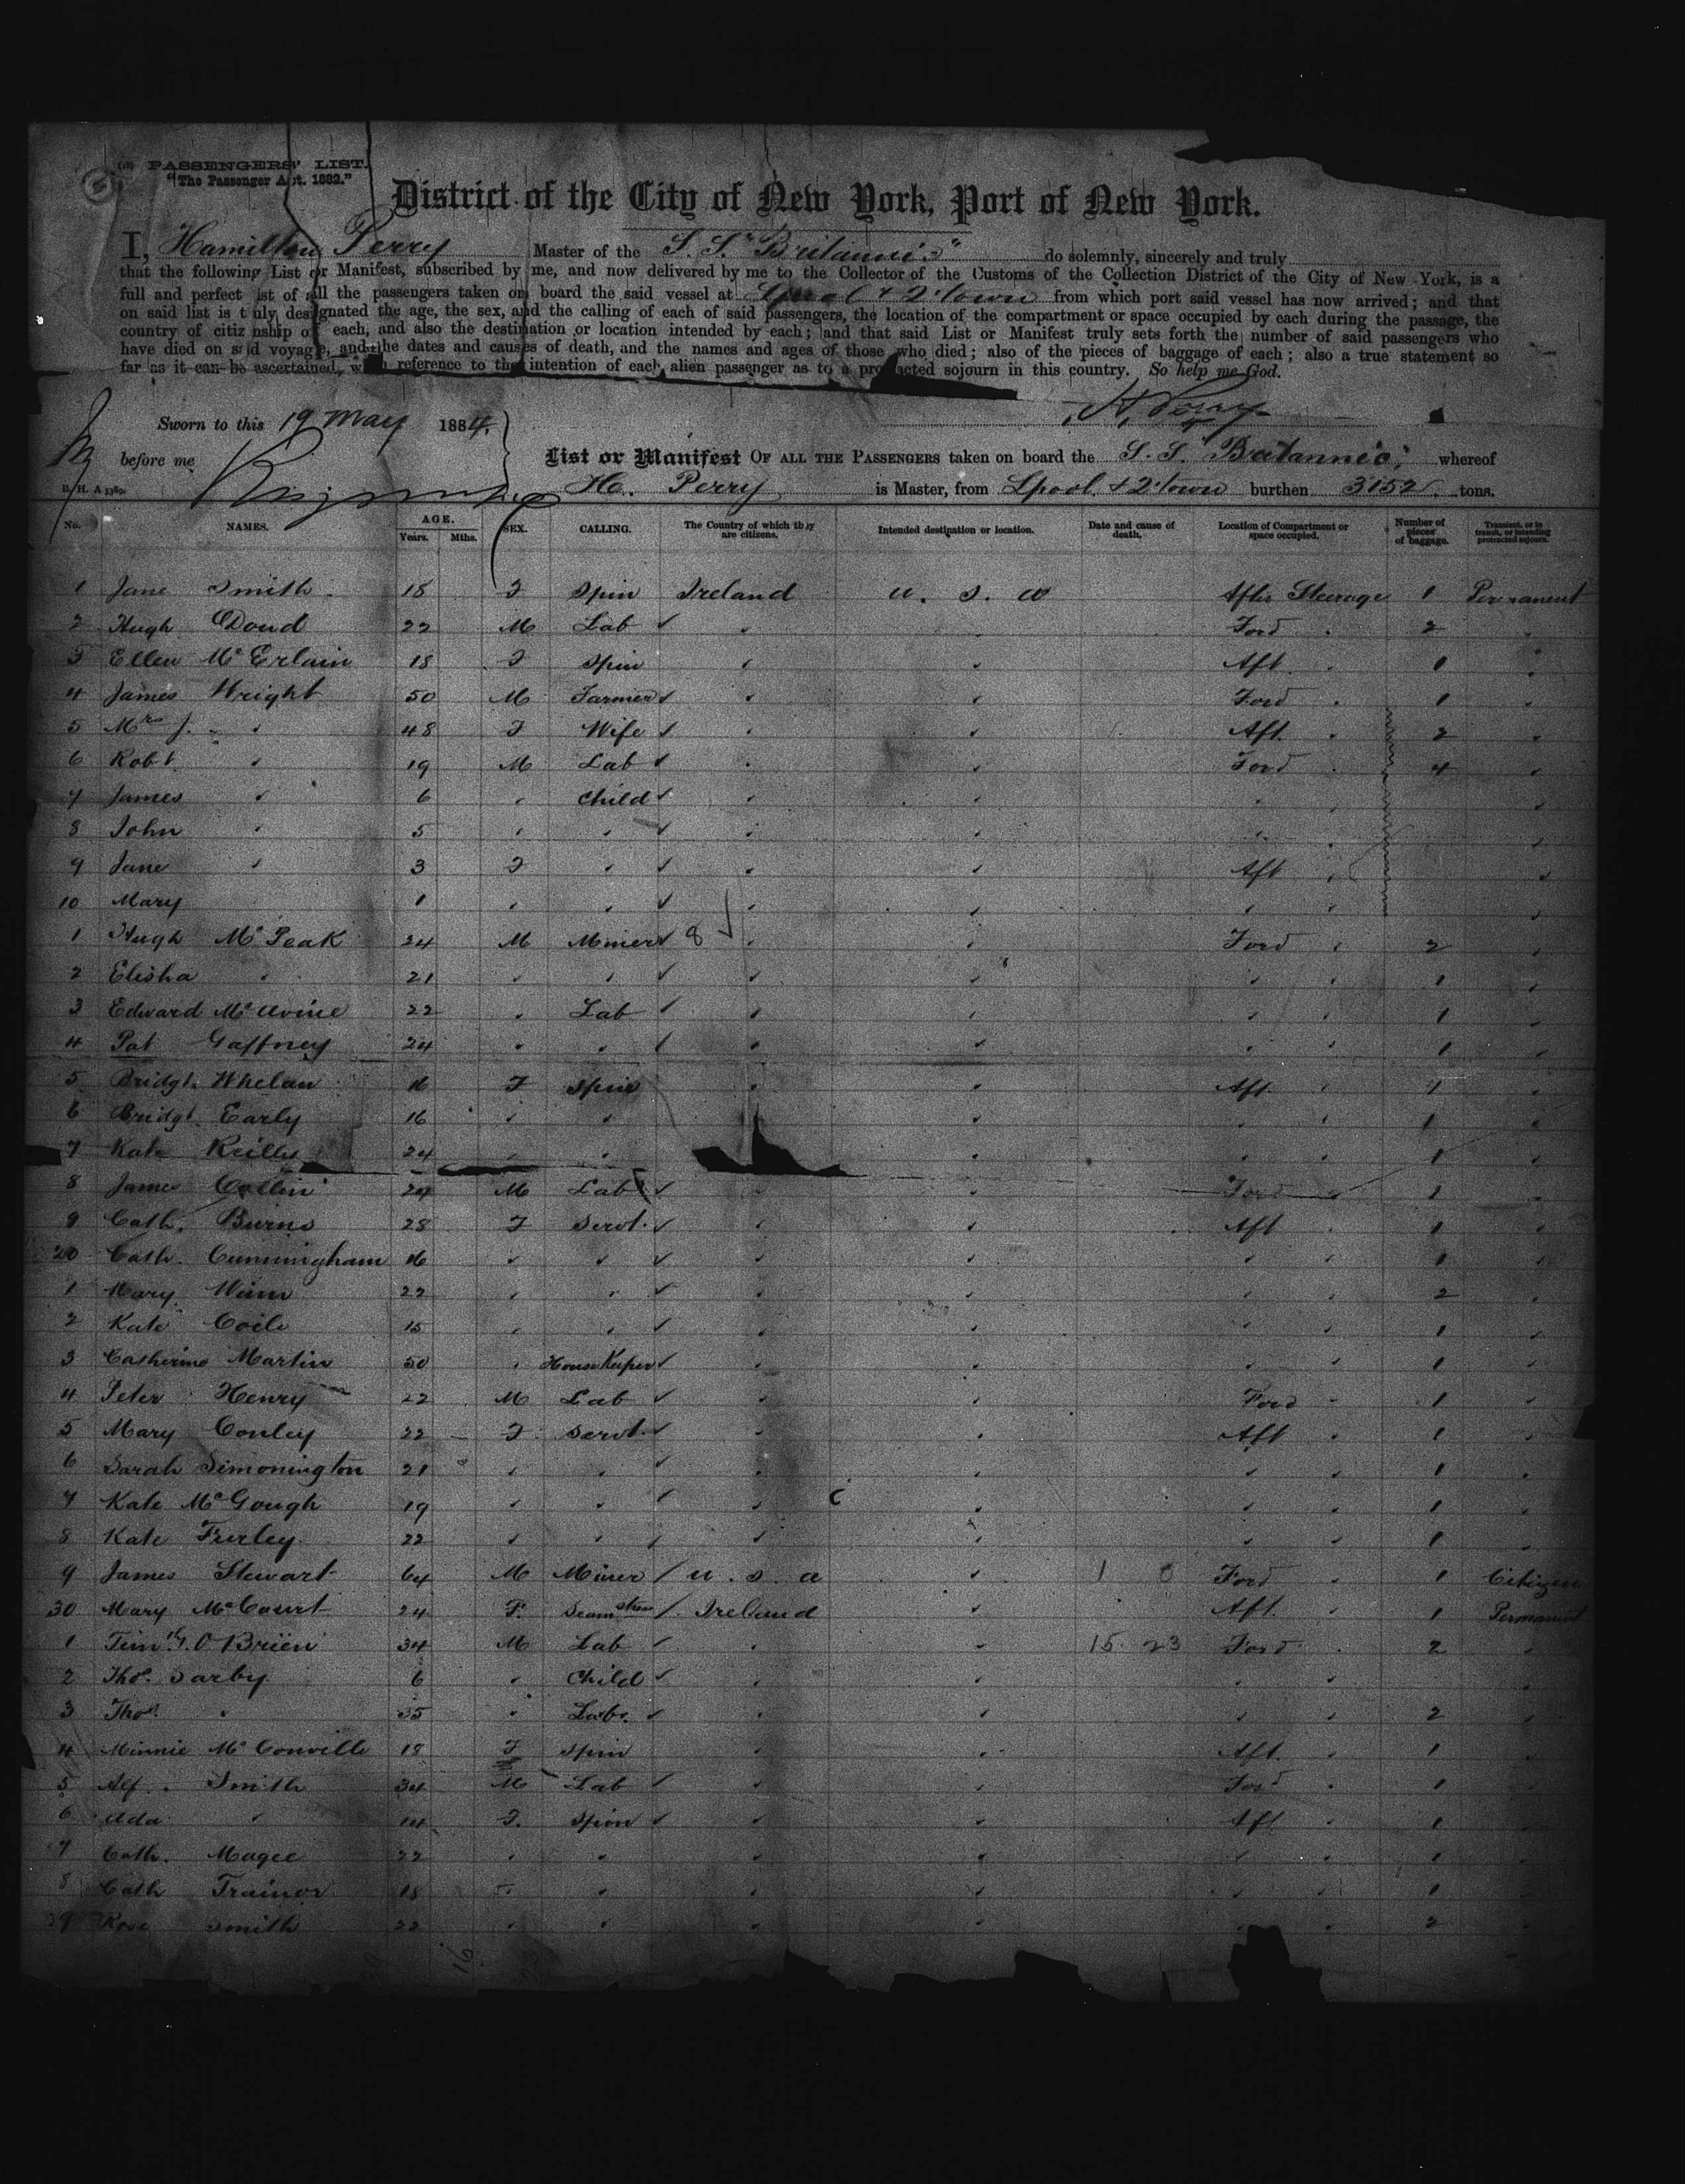 PASSENGERS' LIST.
"The Passenger Act. 1882."
District of the City of New York, Port of New York.
I, Hamilton Perry Master of the S. S. "Britannic" do solemnly, sincerely and truly
that the following List or Manifest, subscribed by me, and now delivered by me to the Collector of the Customs of the Collection District of the City of New York, is a
full and perfect ist of all the passengers taken on board the said vessel at Lpool & Q'town from which port said vessel has now arrived; and that
on said list is t uly designated the age, the sex, and the calling of each of said passengers, the location of the compartment or space occupied by each during the passage, the
country of citiz nship of each, and also the destination or location intended by each; and that said List or Manifest truly sets forth the number of said passengers who
have died on said voyage, and the dates and causes of death, and the names and ages of those who died; also of the pieces of baggage of each; also a true statement so
far as it can be ascertained, w h reference to the intention of each alien passenger as to a pro acted sojourn in this country. So help me God.
H. Perry
Sworn to this 19 May 1884,
before me
List or Manifest OF ALL THE PASSENGERS taken on board the S. S. Britannic, whereof
B. H. A 5389. H. Perry is Master, from Lpool. & Q'town burthen 3152 tons.
No. NAMES. AGE. Years. Mths. SEX. CALLING. The Country of which they are citizens. Intended destination or location. Date and cause of death. Location of Compartment or space occupied. Number of pieces of baggage. Transient, or in transit, or intending protracted sojourn.
1 Jane Smith 18 F Spin Ireland U. S. A After Steerage 1 Permanent
2 Hugh Doud 22 M Lab ✓ Ford 2
3 Ellen McErlain 18 F Spin Aft 1
4 James Wright 50 M Farmer ✓ Ford 1
5 Mrs J. " 48 F Wife ✓ Aft 2
6 Robt " 19 M Lab ✓ Ford 4
7 James " 6 " Child ✓
8 John " 5 " " ✓
9 Jane " 3 F " ✓ Aft
10 Mary 1 " " ✓
1 Hugh McPeak 24 M Miner ✓ 8 ✓ Ford 2
2 Elisha " 21 " " ✓ 1
3 Edward McAvine 22 " Lab ✓ 1
4 Pat Gaffney 24 " " ✓ 1
5 Bridgt. Whelan 16 F Spin Aft 1
6 Bridgt. Early 16 " " 1
7 Kate Reilly 24 " " 1
8 James Collin 24 M Lab ✓ Ford 1
9 Cath. Burns 28 F Servt. ✓ Aft 1
20 Cath. Cunningham 16 " " ✓ 1
1 Mary Winn 22 " " ✓ 2
2 Kate Coile 15 " " ✓ 1
3 Catherine Martin 50 " House Keeper ✓ 1
4 Peter Henry 22 M Lab ✓ Ford 1
5 Mary Conley 22 F Servt. ✓ Aft 1
6 Sarah Simonington 21 " " ✓ 1
7 Kate McGough 19 " " ✓ 1
8 Kate Furley 22 " " ✓ 1
9 James Stewart 64 M Miner ✓ U. S. A Ford 1 Citizen
30 Mary McCourt 24 F. Seamstress ✓ Ireland Aft. 1 Permanent
1 Timthy. O'Brien 34 M Lab ✓ 15 23 Ford 2
2 Thos. Darby 6 " Child ✓
3 Thos. " 35 " Labr. ✓ 2
4 Minnie McConville 18 F Spin Aft. 1
5 Alf. Smith 34 M Lab ✓ Ford 1
6 Ada " 14 F. Spin ✓ Aft 1
7 Cath. Magee 22 " " 1
8 Cath Trainor 18 " " 1
39 Rose Smith 22 " " 2
16